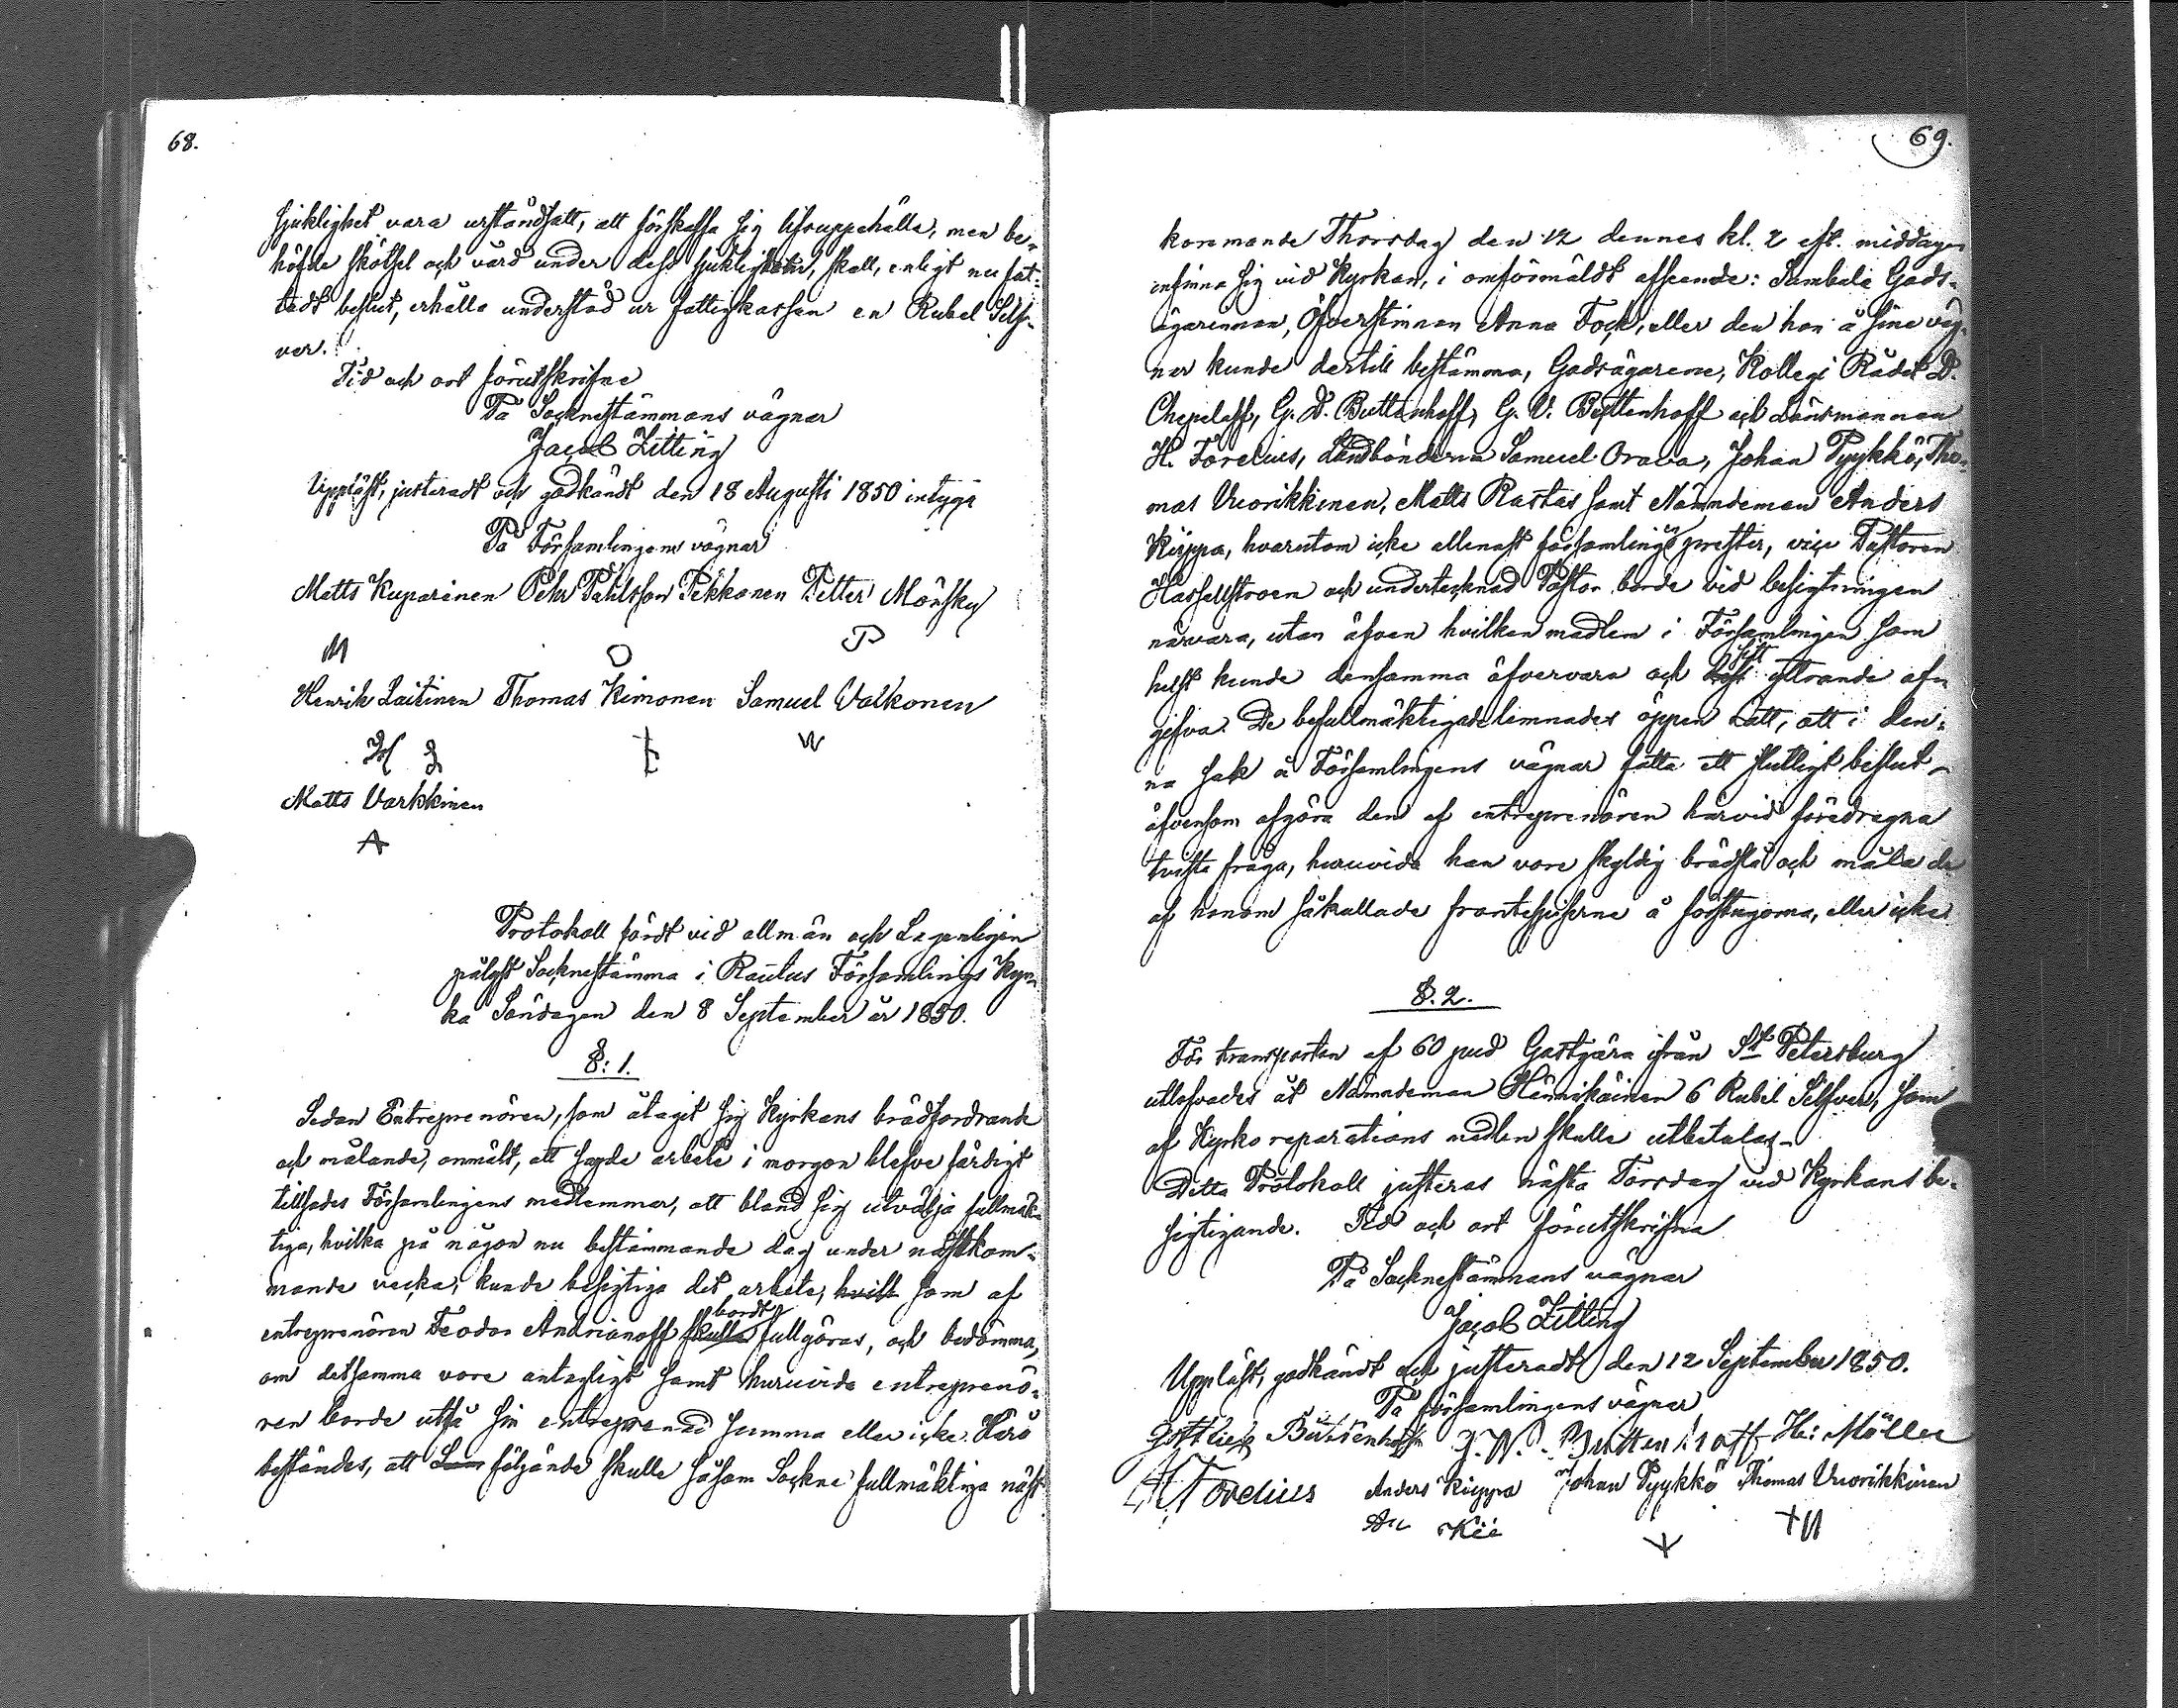 68.
sjuklighet vara urståndsatt, att förskaffa sig lifsuppehälle, men be-
höfde skötsel och vård under dess sjuklighet, skall, enligt nu fat-
tadt beslut, erhålla understöd ur fattigkassan en Rubel Silf-
ver.
Tid och ort förutskrifne
På Socknestämmans vägnar
Jacob Zitting
Uppläst, justeradt och godkändt den 18 Augusti 1850 intyga
På Församlingens vägnar
Matts Kuparinen Pehr Påhlsson Pekkanen Petter Mönsky
M O P
Henrik Laitinen Thomas Kimonen Samuel Valkonen
H L
Matts Varkkinen
A
Protokoll fördt vid allmän och Lagenligen
pålyst Socknestämma i Rautus Församlings Kyr-
ka Söndagen den 8 September år 1850.
§: 1.
Sedan Entreprenören, som åtagit sig Kyrkans brädfordrande
och målande, anmält, att sagde arbete i morgon blefve färdigt
tillsades Församlingens medlemmar, att bland sig utvälja fullmäk-
tiga, hvilka på någon nu bestämmande dag under nästkom-
mande vecka, kunde besigtiga det arbete, hvilk som af
bordt
entreprenören Feodor Andrianoff skulle fullgöras, och bedömma,
om detsamma vore antagligt samt huruvida entreprenö-
ren borde utfå sin entreprenad summa eller icke. Härå
beständes, att följande skulle såsom Sockne fullmäktiga näst
69.
kommande Thorsdag den 12 dennes kl. 2 eft. middagen
infinna sig vid Kyrkan, i omförmäldt afseende: Sumbula Gods-
ägarinnan, Öfverstinnan Anna Fock, eller den hon å sine väg-
nar kunde dertill bestämma, Godsägarene, Kollegi Rådet D.
Chepeleff, G. D. Buttenhoff, G. V. Buttenhoff och Länsmannen
H. Forelius, Landbönderna Samuel Orava, Johan Pyykkö, Tho-
mas Vuorikkinen, Matts Rastas samt Nämndeman Anders
Kiippa, hvarutom icke allenast församlingens prester, vice Pastoren
Hasselstroem och undertecknad Pastor borde vid besigtningen
närvara, utan äfven hvilken medlem i Församlingen som
sitt
helst kunde densamma öfvervara och yttrande af-
gifva. De befullmäktigade lemnades öppen rätt, att i den-
na sak å Församlingens vägnar fatta ett slutligt beslut
äfvensom afgöra den af entreprenören härvid föredragna
tvista fråga, huruvida han vore skyldig brädslå och måla de
af honom såkallade frontespiserne å förstugorna, eller icke.
§. 2.
För transporten af 60 pud Gastjära ifrån St Petersburg
utlofvades åt Nämndeman Hännikäinen 6 Rubel Silfver, som
af Kyrko reparations medlen skulle utbetalas
Detta Protokoll justeras nästa Torsdag vid Kyrkans be-
sigtigande. Tid och ort förutskrifna
På Socknestämmans vägnar
Jacob Zitting
Uppläst, godkändt och justeradt den 12 September 1850.
På församlingens vägnar
Gottlieb Buttenhoff G. W. Buttenhoff H: Möller
H Forelius Anders Kiippa Johan Pyykkö Thomas Vuorikkinen
Kii